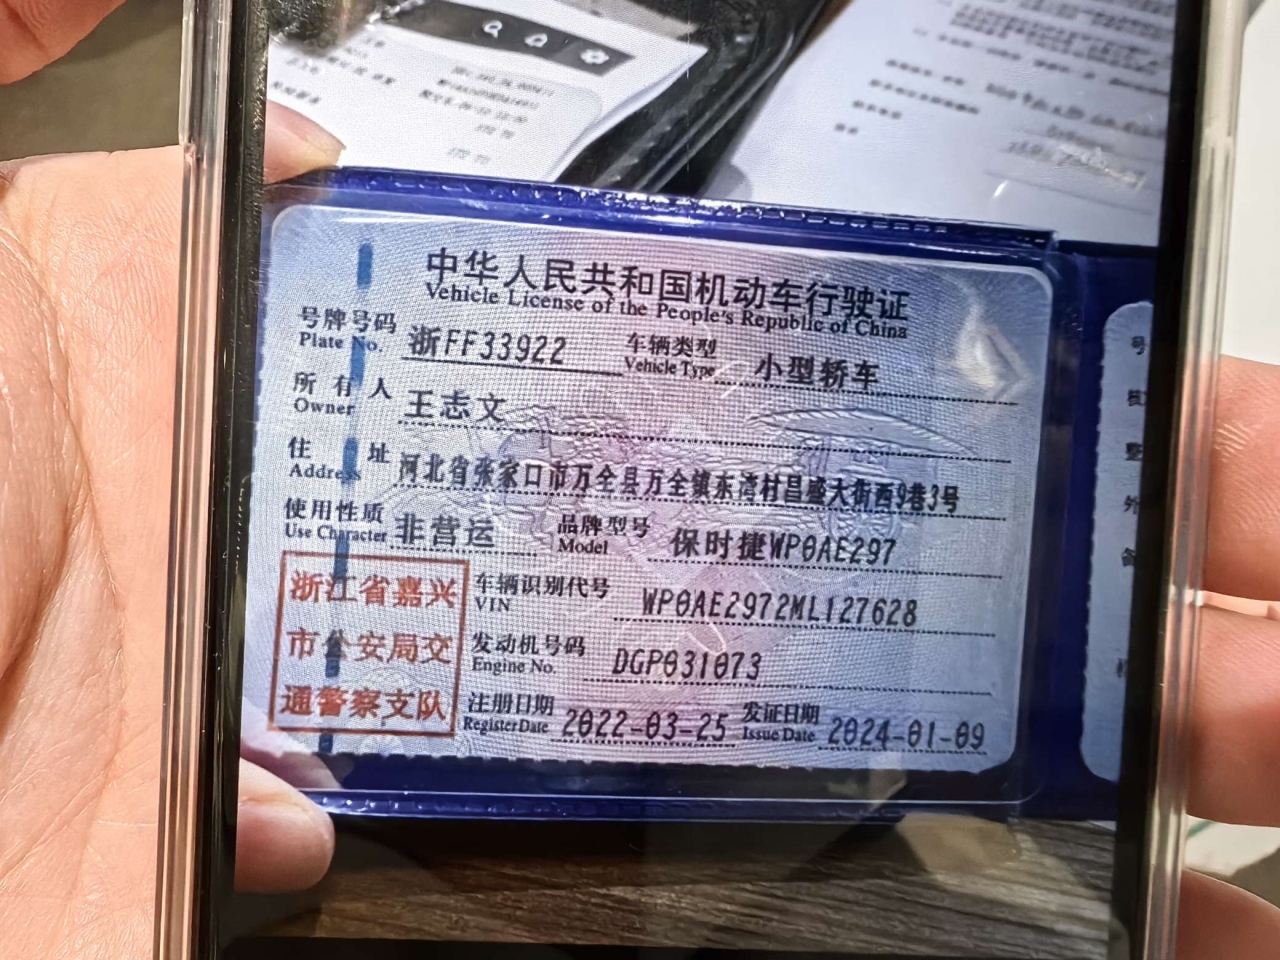 中华人民共和国机动车行驶证
Vehicle License of the People's Republic of China
号牌号码 浙FF33922 车辆类型 小型轿车
Plate No. Vehicle Type
所有人 王志文
Owner
住址 河北省张家口市万全县万全镇东湾村昌盛大街西9巷3号
Address
使用性质 非营运 品牌型号 保时捷WP0AE297
Use Character Model
浙江省嘉兴
市公安局交
通警察支队
车辆识别代号 WP0AE2972ML127628
VIN
发动机号码 DGP031073
Engine No.
注册日期 2022-03-25 发证日期 2024-01-09
Register Date Issue Date
号